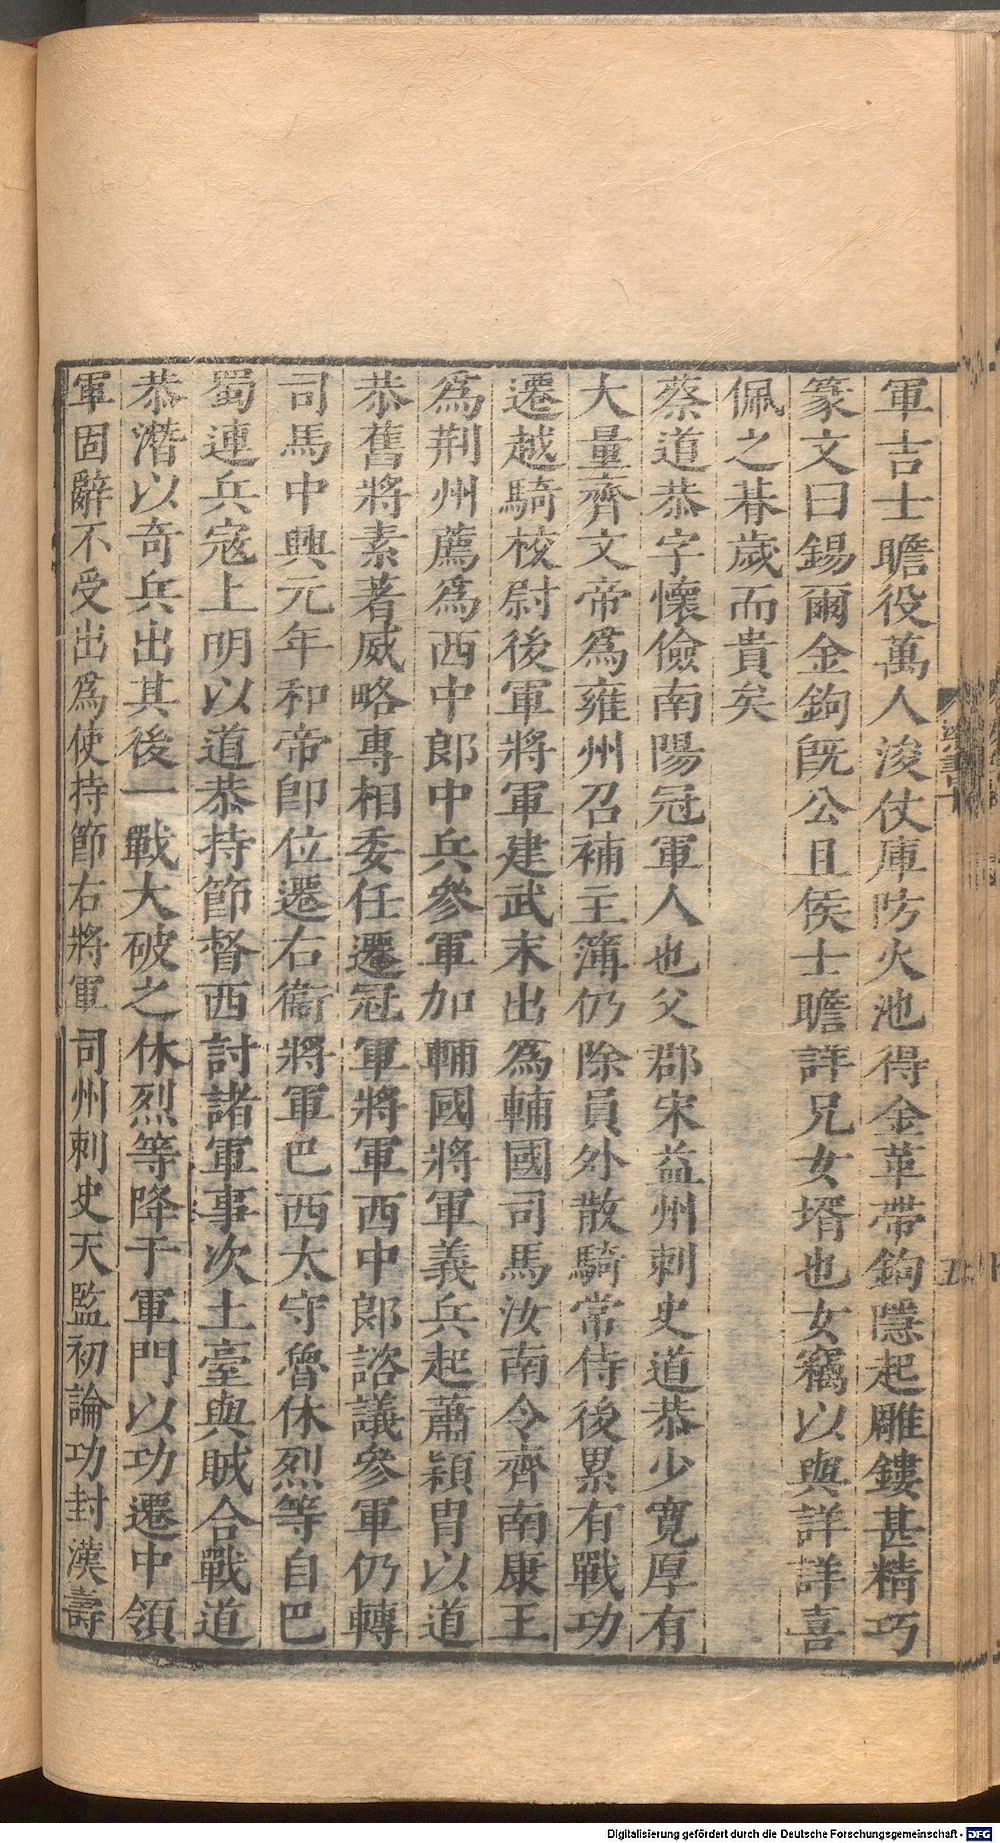 軍吉士瞻役萬人浚仗庫防火池得金革帶鉤隱起雕鏤甚精巧
篆文曰錫爾金鉤旣公且侯士瞻詳兄女壻也女竊以與詳詳喜
佩之朞歲而貴矣
蔡道恭字懷儉南陽冠軍人也父郡宋益州刺史道恭少寬厚有
大量齊文帝爲雍州召補主簿仍除員外散騎常侍後累有戰功
遷越騎校尉後軍將軍建武末出爲輔國司馬汝南令齊南康王
爲荆州薦爲西中郎中兵參軍加輔國將軍義兵起蕭穎胄以道
恭舊將素著威略專相委任遷冠軍將軍西中郎諮議參軍仍轉
司馬中興元年和帝卽位遷右衞將軍巴西太守魯休烈等自巴
蜀連兵寇上明以道恭持節督西討諸軍事次土臺與賊合戰道
恭潛以奇兵出其後一戰大破之休烈等降于軍門以功遷中領
軍固辭不受出爲使持節右將軍司州刺史天監初論功封漢壽
梁書十
五
Digitalisierung gefördert durch die Deutsche Forschungsgemeinschaft - DFG